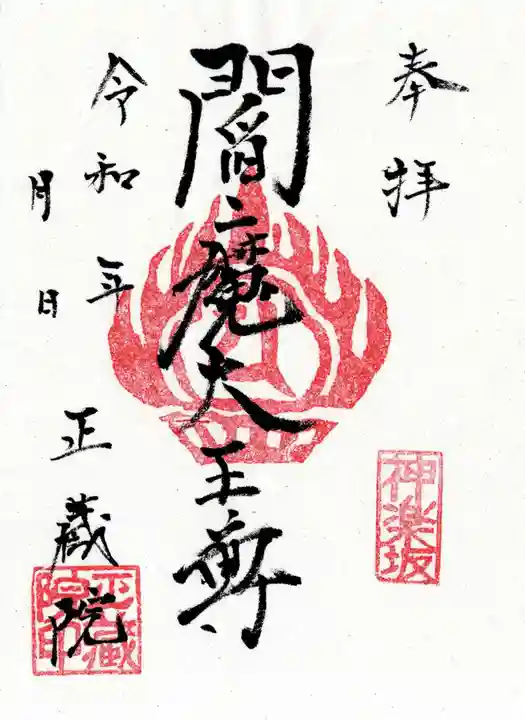 奉拝
神楽坂
閻魔大王尊
令和 年
月 日
正蔵院
正蔵院印